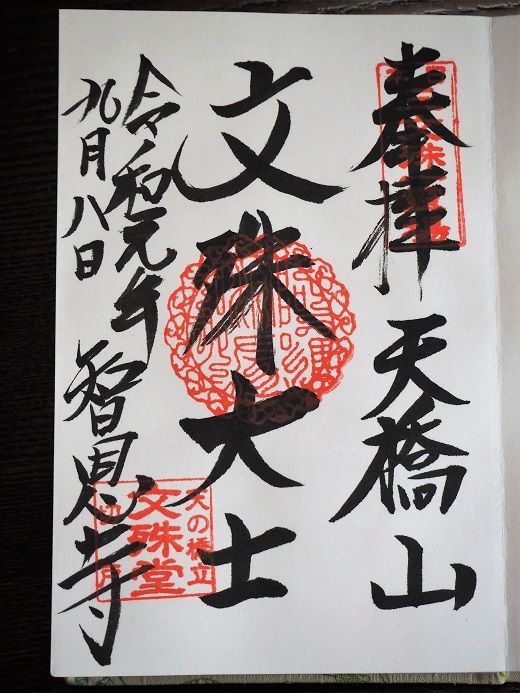 奉拝 天橋山
文殊大士
令和元年
九月八日
智恩寺
天の橋立
文殊堂